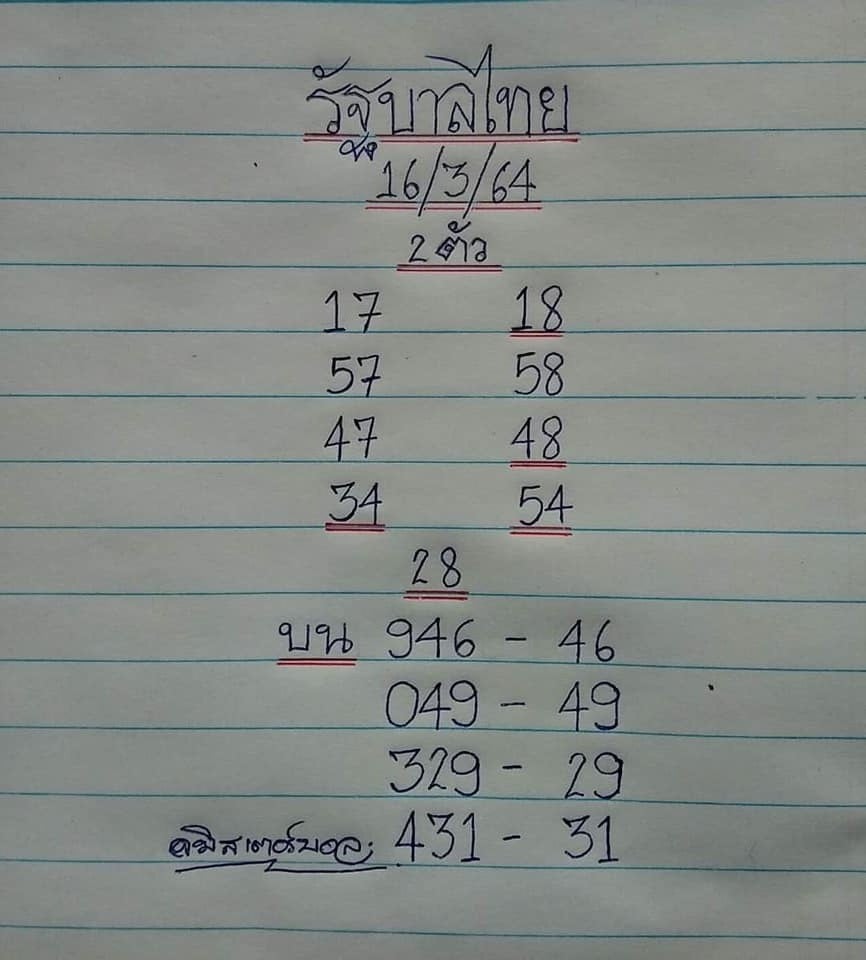 รัฐบาลไทย
16/3/64
2 ตัว
17 18
57 58
47 48
34 54
28
บน 946 - 46
049 - 49
329 - 29
431 - 31